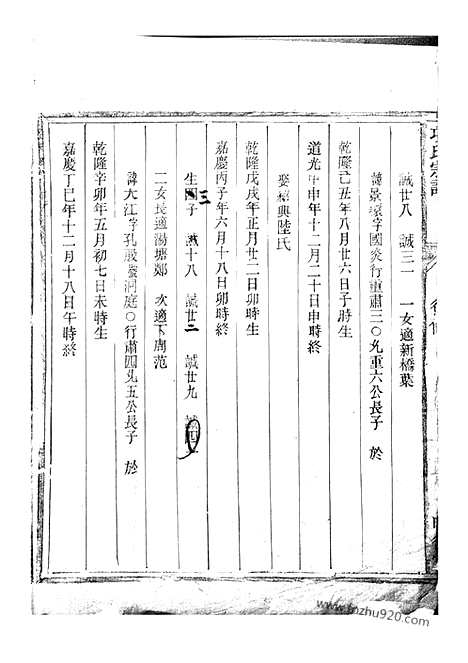 誠廿八　誠三一　一女適新橋葉
諱景　字國炎行重肅三〇九重六公長子　於
乾隆己丑年八月廿六日子時生
道光甲申年十二月二十日申時終
娶　興陸氏
乾隆戊戌年正月廿二日卯時生
嘉慶丙子年六月十八日卯時終
生三子　誠十八　誠廿二　誠廿九　誠四一
二女長適湯塘鄭　次適下周范
諱大江字孔殷號洞庭〇行肅四　五公長子　於
乾隆辛卯年五月初七日未時生
嘉慶丁巳年十二月十八日午時終
www.jinzhu920.com